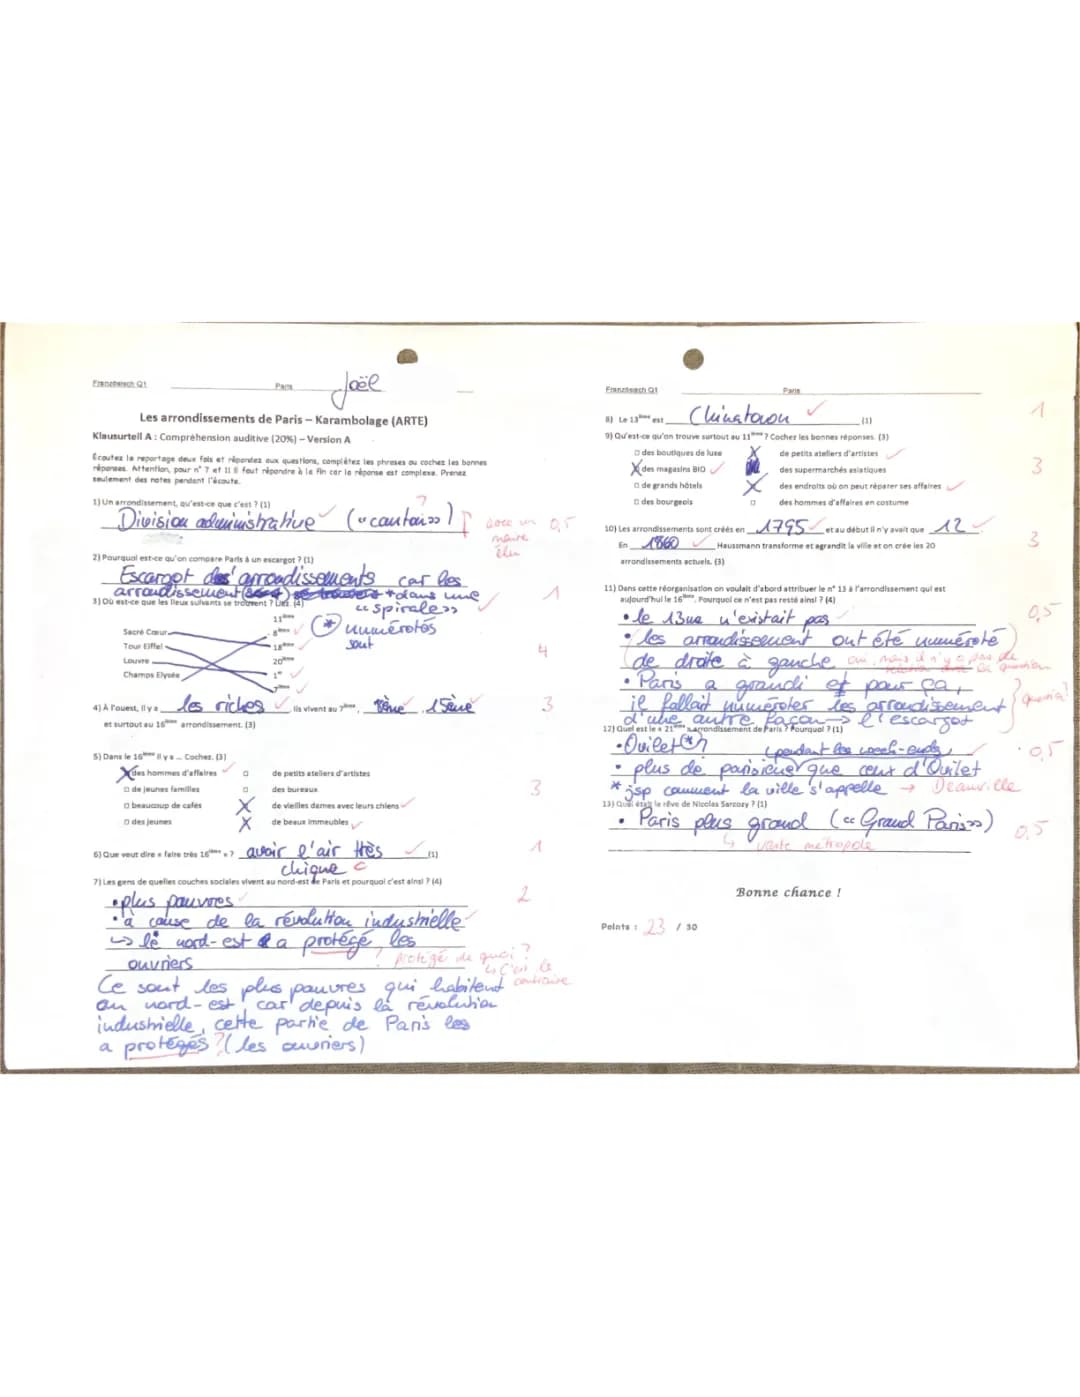 Französisch Q1 Paris Joël
Les arrondissements de Paris – Karambolage (ARTE)
Klausurteil A : Compréhension auditive (20%) – Version A
Écoutez le reportage deux fois et répondez aux questions, complétez les phrases ou cochez les bonnes
réponses. Attention, pour n° 7 et 11 il faut répondre à la fin car la réponse est complexe. Prenez
seulement des notes pendant l'écoute.
1) Un arrondissement, qu'est-ce que c'est ? (1)
Division administrative («canton») ?
avec un 0,5
maire
élu
2) Pourquoi est-ce qu'on compare Paris à un escargot ? (1)
Escargot des arrondissements car les
arrondissement * dans une
«spirale» 1
3) Où est-ce que les lieux suivants se trouvent ? Liez. (4)
* numérotés
sont
11ième
Sacré Cœur 8ième
Tour Eiffel 18ième
Louvre 20ième
Champs Elysée 1er
7ième
4
4) À l'ouest, il y a les riches, ils vivent au 7ième, 8ème, 15ème 3
et surtout au 16ième arrondissement. (3)
5) Dans le 16ième il y a ... Cochez. (3)
X des hommes d'affaires □ de petits ateliers d'artistes
□ de jeunes familles □ des bureaux 3
□ beaucoup de cafés X de vieilles dames avec leurs chiens
□ des jeunes X de beaux immeubles
6) Que veut dire « faire très 16ième » ? avoir l'air très (1) 1
chique c
7) Les gens de quelles couches sociales vivent au nord-est de Paris et pourquoi c'est ainsi ? (4)
• plus pauvres 2
• à cause de la révolution industrielle
↳ le nord-est a protégé les
ouvriers ? protégé de quoi ?
↳ C'est le
contraire
Ce sont les plus pauvres qui habitent
au nord-est car depuis la révolution
industrielle, cette partie de Paris les
a protégés ? (les ouvriers)
Französisch Q1 Paris
8) Le 13ième est Chinatown (1) 1
9) Qu'est-ce qu'on trouve surtout au 11ième ? Cochez les bonnes réponses. (3)
□ des boutiques de luxe X de petits ateliers d'artistes
X des magasins BIO des supermarchés asiatiques 3
□ de grands hôtels X des endroits où on peut réparer ses affaires
□ des bourgeois □ des hommes d'affaires en costume
10) Les arrondissements sont créés en 1795 et au début il n'y avait que 12.
En 1860 Haussmann transforme et agrandit la ville et on crée les 20 3
arrondissements actuels. (3)
11) Dans cette réorganisation on voulait d'abord attribuer le n° 13 à l'arrondissement qui est
aujourd'hui le 16ième. Pourquoi ce n'est pas resté ainsi ? (4)
• le 13ue n'existait pas 0,5
• les arrondissement ont été numéroté
de droite à gauche mais il n'y a pas de
la question
• Paris a grandi et pour ça,
il fallait numéroter les arrondissement
d'une autre façon → l'escargot
12) Quel est le « 21ième » arrondissement de Paris ? Pourquoi ? (1)
• Ouilet * ? (pendant les week-ends)
• plus de parisiens que ceux d'Ouilet 0,5
* jsp comment la ville s'appelle → Deauville
13) Quel était le rêve de Nicolas Sarcozy ? (1)
• Paris plus grand («Grand Paris») 0,5
↳ vaste metropole
Bonne chance !
Points : 23 / 30